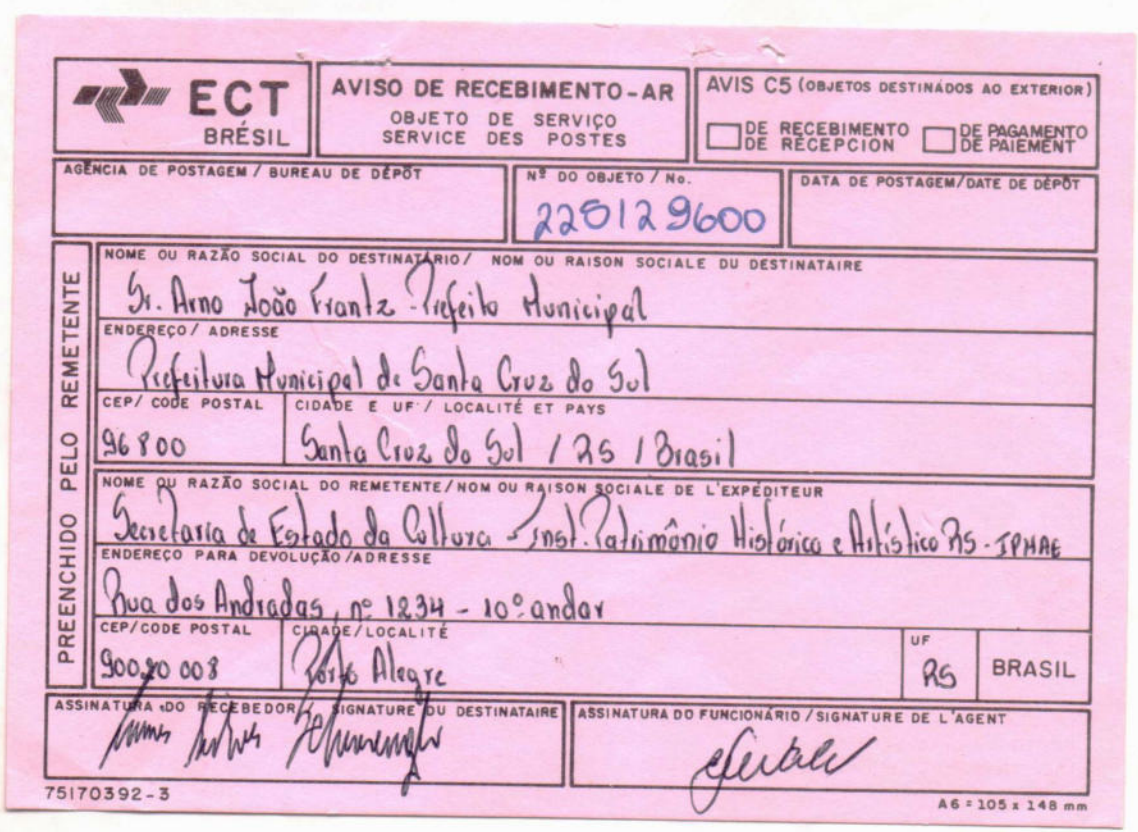 ECT
BRÉSIL
AVISO DE RECEBIMENTO-AR
OBJETO DE SERVIÇO
SERVICE DES POSTES
AVIS C5 (OBJETOS DESTINADOS AO EXTERIOR)
DE RECEBIMENTO
DE RÉCEPCION
DE PAGAMENTO
DE PAIEMENT
AGÊNCIA DE POSTAGEM / BUREAU DE DÉPÔT
Nº DO OBJETO / No.
225129600
DATA DE POSTAGEM/DATE DE DÉPÔT
PREENCHIDO PELO REMETENTE
NOME OU RAZÃO SOCIAL DO DESTINATÁRIO / NOM OU RAISON SOCIALE DU DESTINATAIRE
Sr. Arno João Frantz - Prefeito Municipal
ENDEREÇO / ADRESSE
Prefeitura Municipal de Santa Cruz do Sul
CEP/ CODE POSTAL
96800
CIDADE E UF / LOCALITÉ ET PAYS
Santa Cruz do Sul / RS / Brasil
NOME OU RAZÃO SOCIAL DO REMETENTE/NOM OU RAISON SOCIALE DE L'EXPÉDITEUR
Secretaria de Estado da Cultura - Inst. Patrimônio Histórico e Artístico RS - IPHAE
ENDEREÇO PARA DEVOLUÇÃO /ADRESSE
Rua dos Andradas, nº 1234 - 10º andar
CEP/CODE POSTAL
90020 008
CIDADE/LOCALITÉ
Porto Alegre
UF
RS
BRASIL
ASSINATURA DO RECEBEDOR / SIGNATURE DU DESTINATAIRE
ASSINATURA DO FUNCIONÁRIO / SIGNATURE DE L'AGENT
75170392-3
A6 = 105 x 148 mm